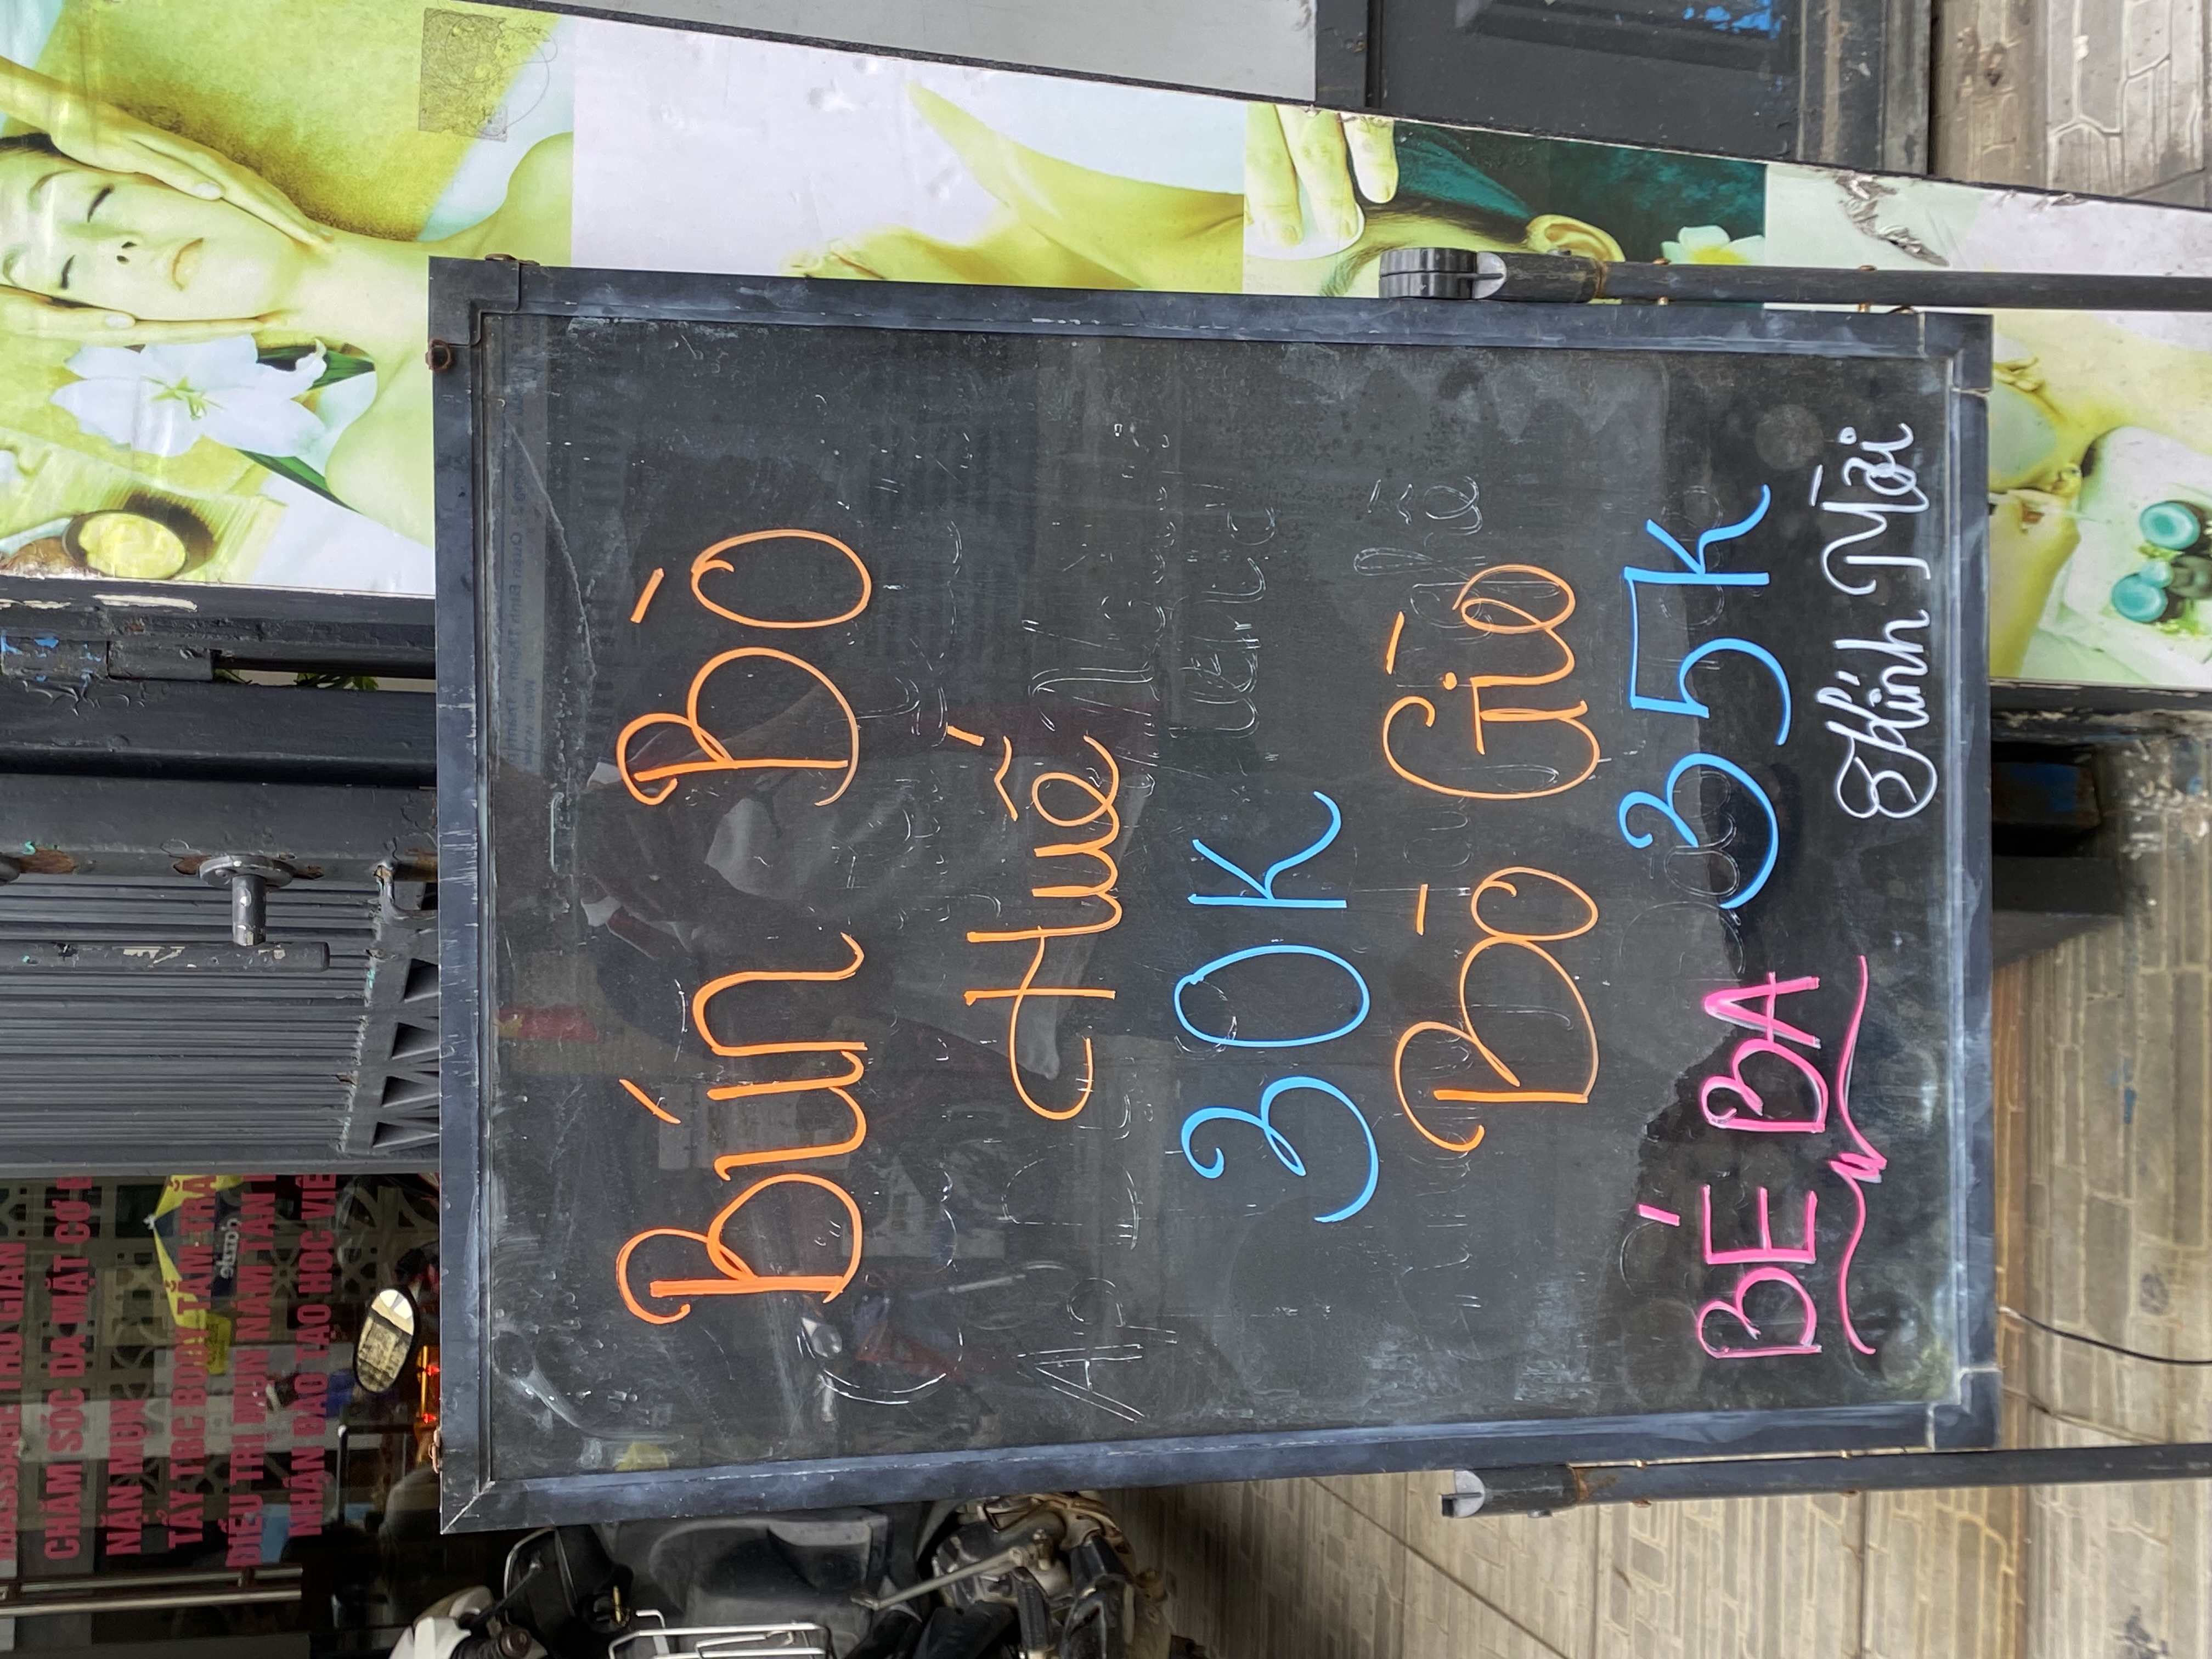 Bún Bò
Huế
30K
Bò Giò
35K
BÉ BA
Kính Mời
CHĂM SÓC DA MẶT CƠ
NẶN MỤN
TẨY TBC BODY TẮM TRẮ
ĐIỀU TRỊ MỤN NÁM TÀN
NHẬN ĐÀO TẠO HỌC VIÊ